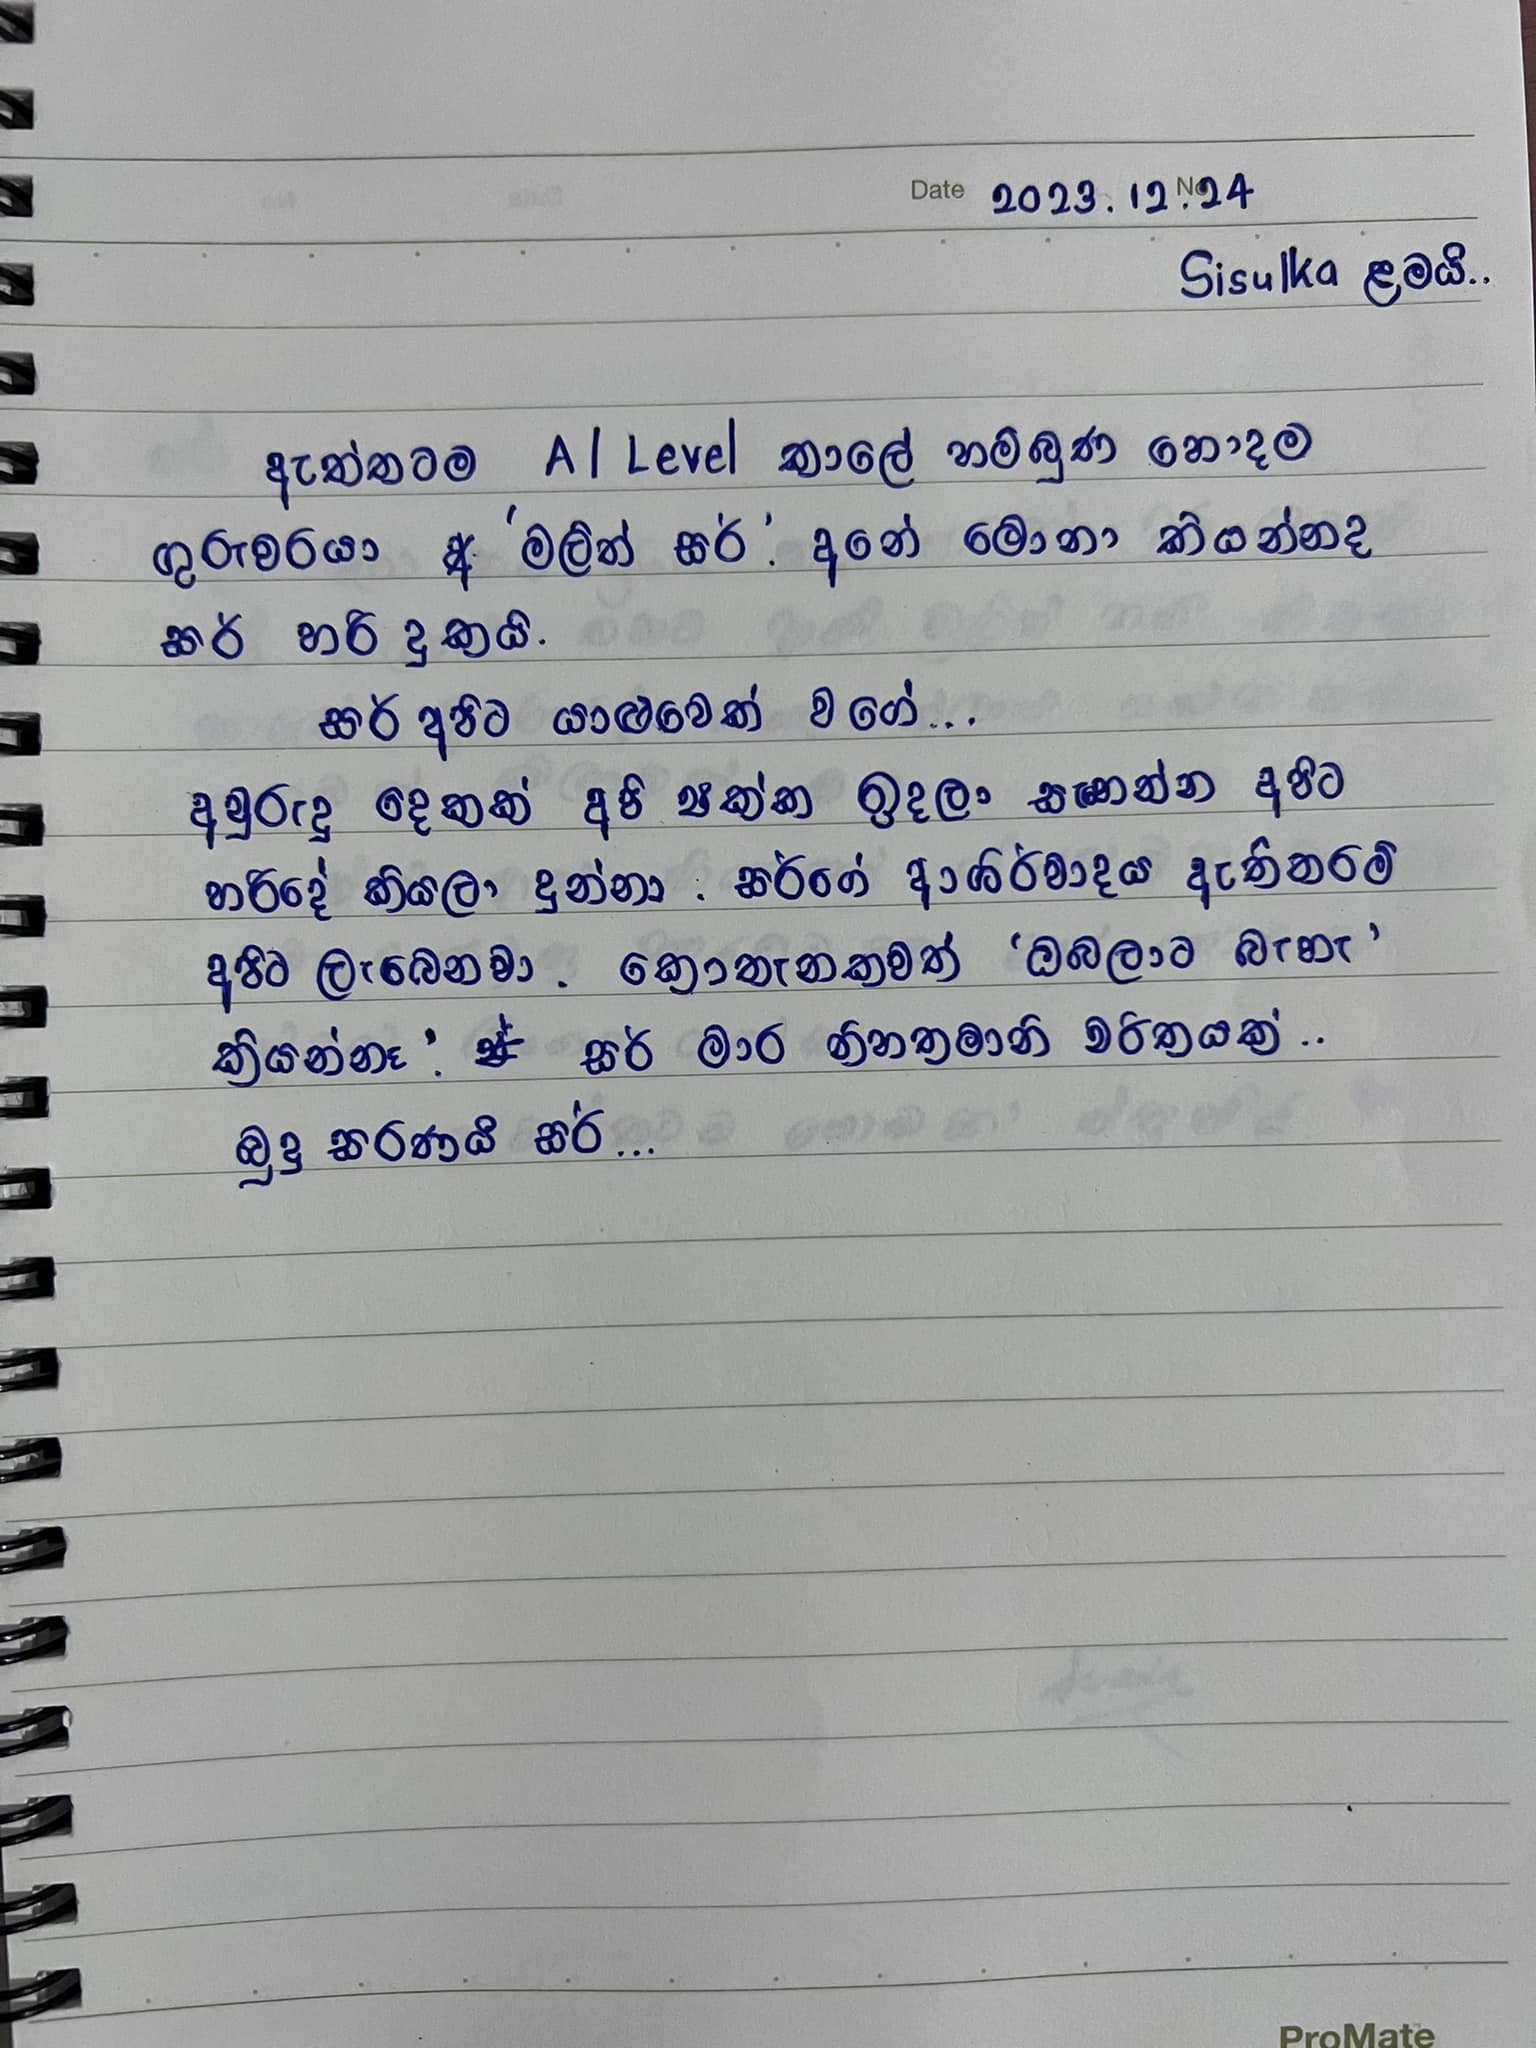 Date 2023.12.24 No
Sisulka ළමයි..
ඇත්තටම A/Level කාලේ හම්බුණ හොදම
ගුරුවරයා 'මලිත් සර්'. අනේ මොනා කියන්නද
සර් හරි දුකයි.
සර් අපිට යාළුවෙක් වගේ...
අවුරුදු දෙකක් අපි පැත්ත ඉදලා අපිට
හරිදේ කියලා දුන්නා. සර්ගේ ආශිර්වාදය ඇතිතරම්
අපිට ලැබෙනවා. කොතැනකවත් 'ඔබලාට බැහැ'
කියන්නෑ'. සර් මාර නිහතමානි චරිතයක්..
බුදු සරණයි සර්...
ProMate